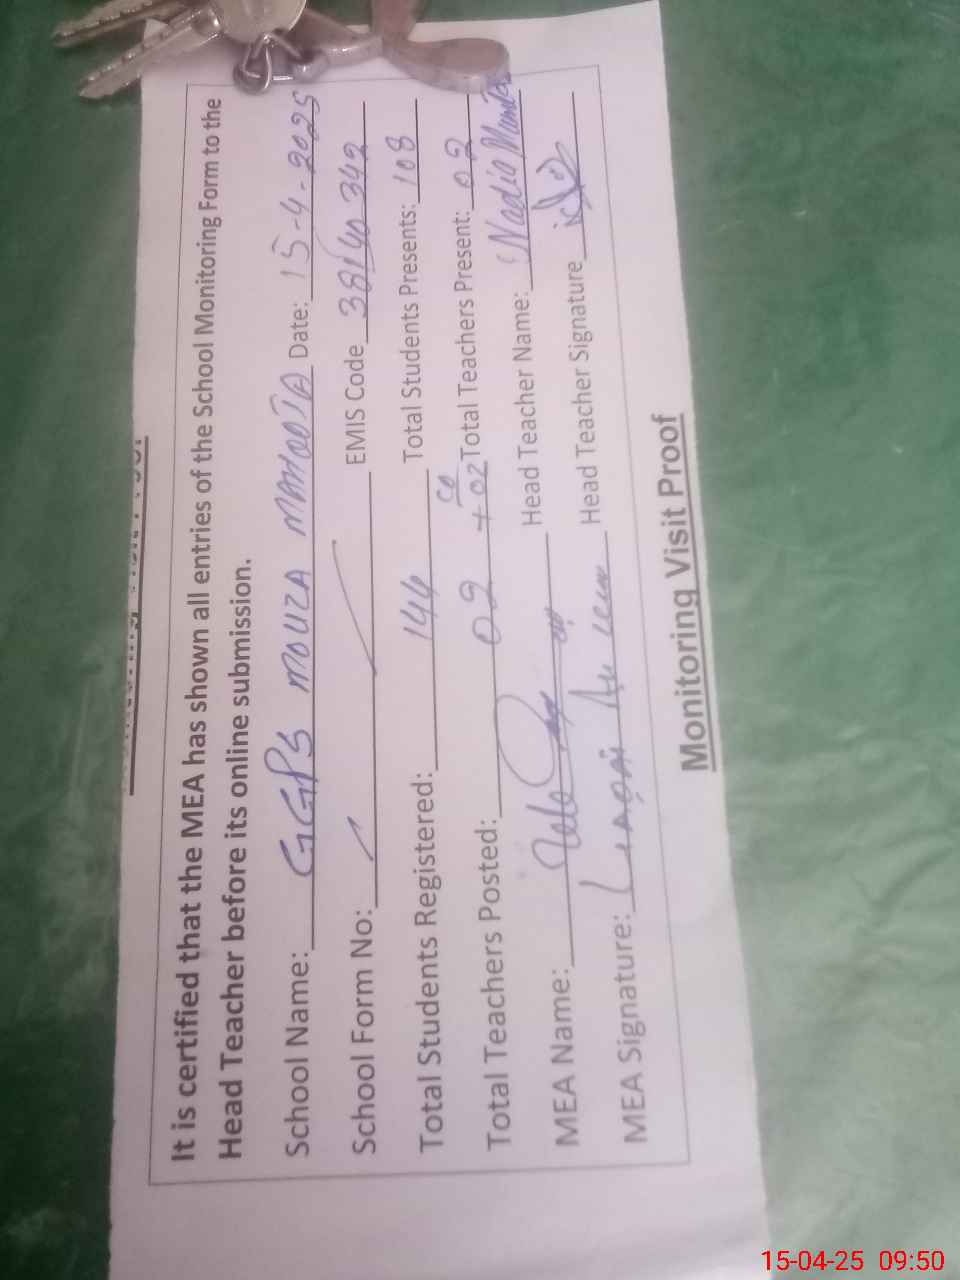 It is certified that the MEA has shown all entries of the School Monitoring Form to the
Head Teacher before its online submission.
School Name: GGPS MOUZA MAHOOTA Date: 15-4-2025
School Form No: EMIS Code 38140342
Total Students Registered: 144 Total Students Presents: 108
Total Teachers Posted: 02 + 02 Total Teachers Present: 02
MEA Name: Head Teacher Name: Nadia
MEA Signature: Head Teacher Signature
Monitoring Visit Proof
15-04-25 09:50